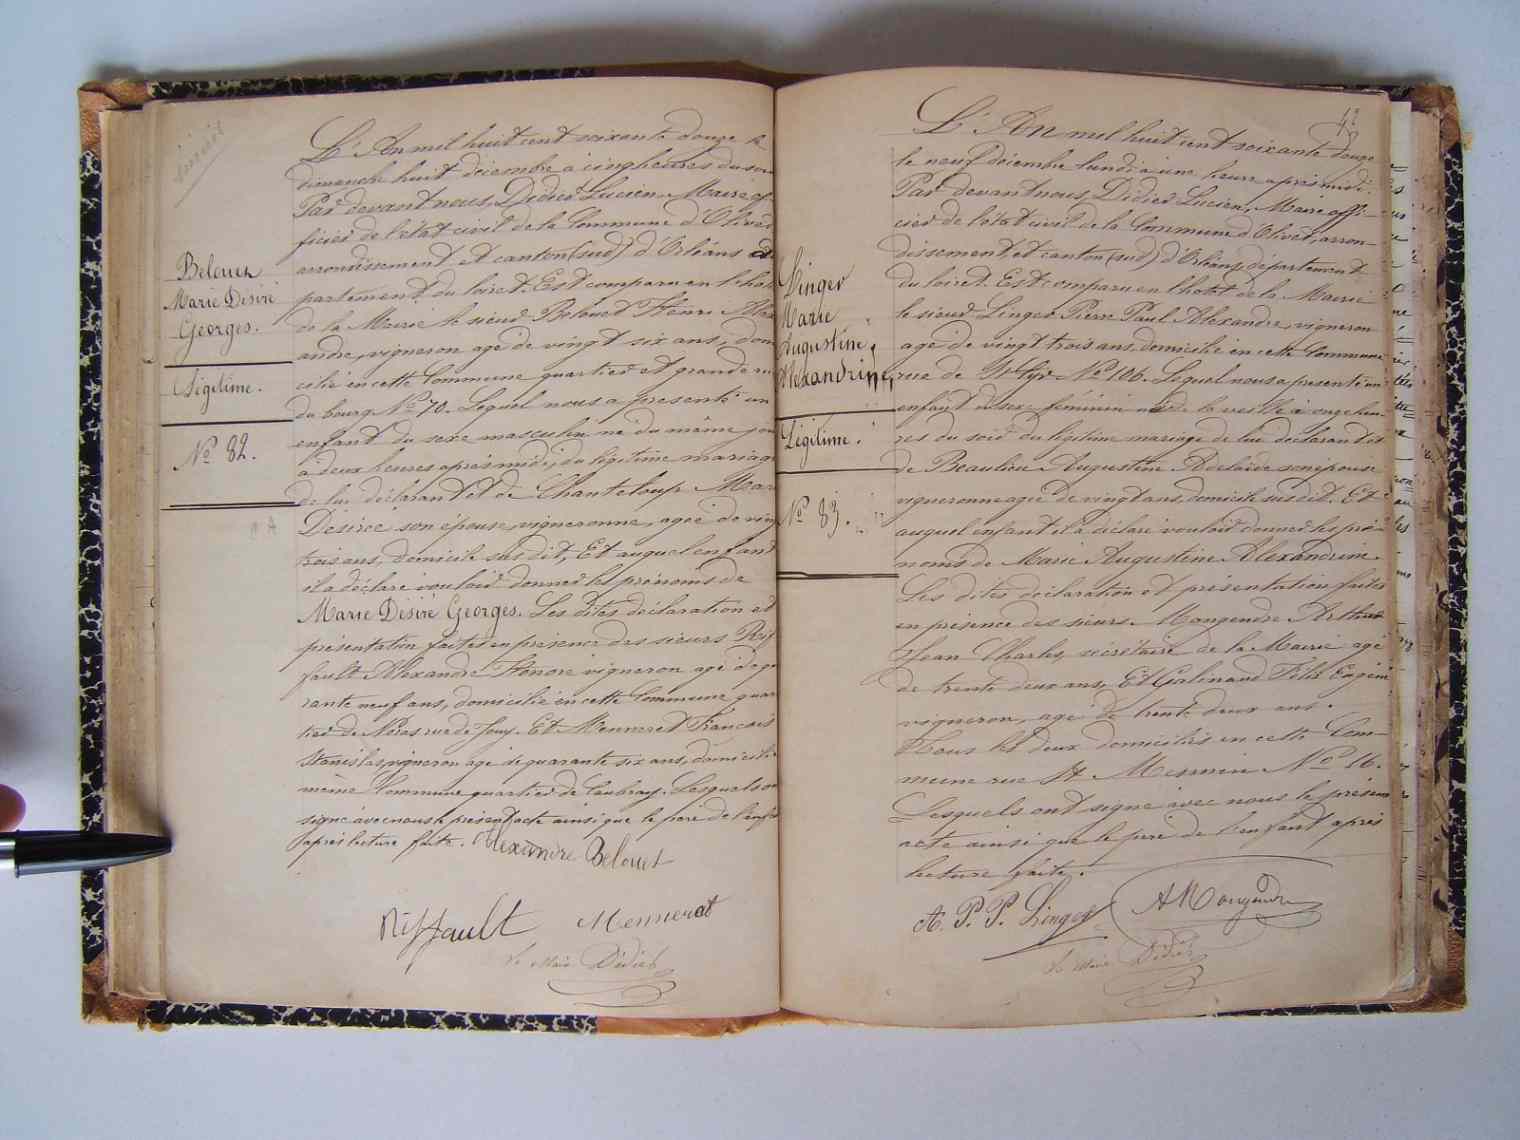 Belouet
Marie Désiré
Georges.
Légitime.
No 82.
L'An mil huit cent soixante douze le
dimanche huit décembre à cinq heures du soir
Par devant nous, Didier Lucien, Maire of-
ficier de l'état civil de la Commune d'Olivet
arrondissement et canton (sud) d'Orléans dé
partement du loiret. Est comparu en l'hotel
de la Mairie le sieur Belouet Henri Alex
andre, vigneron agé de vingt six ans, domi
cilié en cette Commune quartier et grande rue
du bourg No 70. Lequel nous a présenté un
enfant du sexe masculin né du même jour
à deux heures après midi, du légitime mariage
de lui déclarant et de Chanteloup Marie
Desirée son épouse, vigneronne, agée de vingt
trois ans, domicile susdit, Et auquel enfant
il a déclaré vouloir donner les prénoms de
Marie Désiré Georges. Les dites déclaration et
présentation faites en présence des sieurs Rif
fault Alexandre Honoré vigneron agé de qua
rante neuf ans, domicilié en cette Commune quar
tier de Noras rue de Jouy. Et Menneret François
Stanislas, vigneron agé de quarante six ans, domicilié
même Commune quartier de Caubray. Lesquels ont
signé avec nous le présent acte ainsi que le père de l'enfant
après lecture faite. Alexandre Belouet
Riffault Menneret
Le Maire Didier
42
Linger
Marie
Augustine
Alexandrine,
Légitime.
No 83.
L'An mil huit cent soixante douze
le neuf décembre lundi à une heure après midi.
Par devant nous, Didier Lucien, Maire offi-
cier de l'état civil de la Commune d'Olivet, arron-
dissement et canton (sud) d'Orléans, département
du loiret. Est comparu en l'hotel de la Mairie
le sieur Linger Pierre Paul Alexandre, vigneron
agé de vingt trois ans, domicilié en cette Commune
rue de St Cyr No 106. Lequel nous a présenté un
enfant du sexe féminin né de la veille à onze heu-
res du soir du légitime mariage de lui déclarant et
de Beaulieu Augustine Adelaïde son épouse
vigneronne agée de vingt ans, domicile susdit. Et
auquel enfant il a déclaré vouloir donner les pré-
noms de Marie Augustine Alexandrine.
Les dites déclaration et présentation faites
en présence des sieurs Mongendre Arthur
Jean Charles, secrétaire de la Mairie agé
de trente deux ans, Et Galinaud Félix Eugène
vigneron, agé de trente deux ans.
Tous les deux domiciliés en cette Com-
mune rue St Mesmin No 16.
Lesquels ont signé avec nous le présent
acte ainsi que le père de l'enfant après
lecture faite.
A. P. P. Linger AMongendre
Le Maire Didier